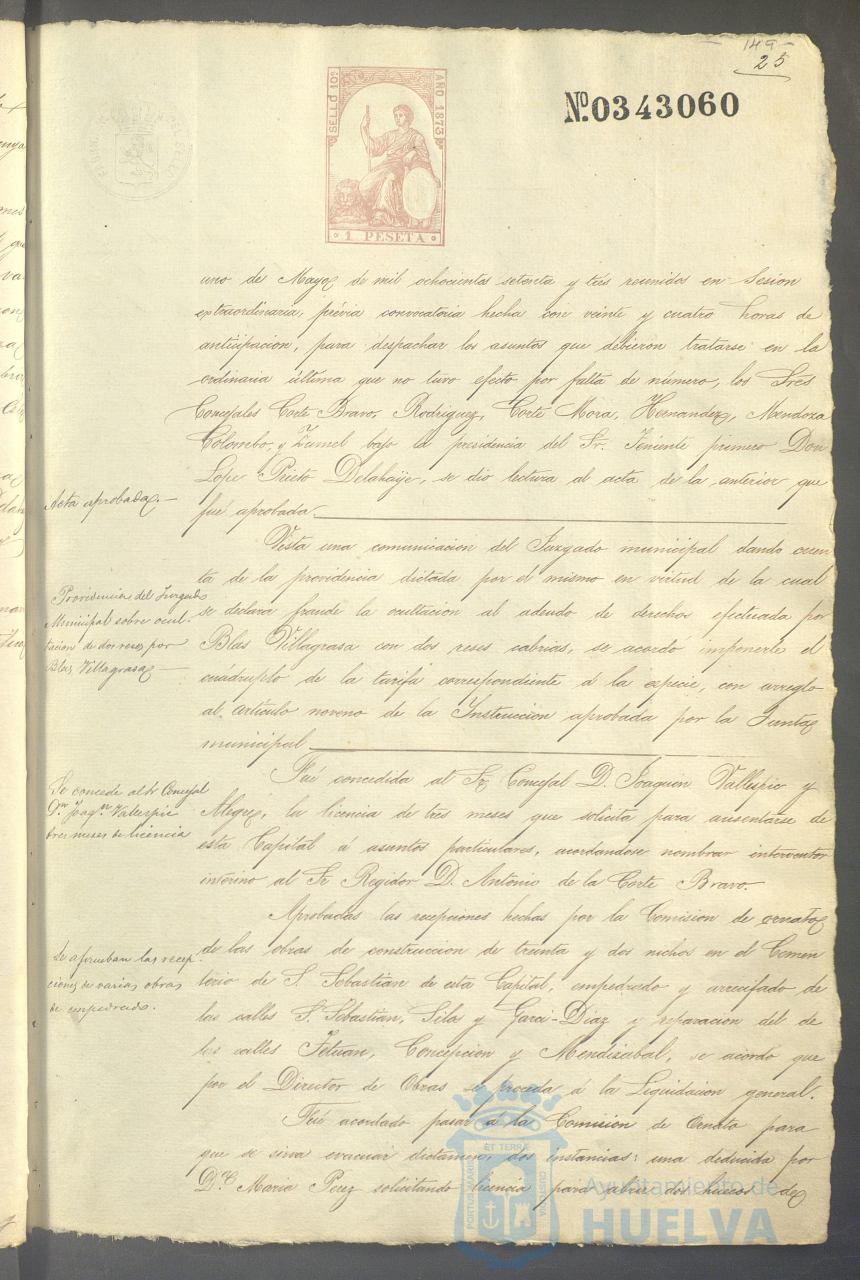 149
25
SELLO 10º
AÑO 1873
1 PESETA
Nº 0343060
uno de Mayo de mil ochocientos setenta y tres reunidos en Sesion
extraordinaria, prévia convocatoria hecha con veinte y cuatro horas de
anticipacion, para despachar los asuntos que debieron tratarse en la
ordinaria última que no tuvo efecto por falta de número, los Sres
Concejales Corte Bravo, Rodriguez, Corte Mora, Hernandez, Mendoza
Colombo, y Zumel bajo la presidencia del Sr. Teniente primero Don
Lope Prieto Delahaije, se dio lectura al acta de la anterior que
fué aprobada
Acta aprobada.—
Vista una comunicacion del Juzgado municipal dando cuen
ta de la providencia dictada por el mismo en virtud de la cual
se declara fraude la ocultacion al adeudo de derechos efectuada por
Blas Villagrasa con dos reses cabrias, se acordó imponerle el
cuádruplo de la tarifa correspondiente á la especie, con arreglo
al artículo noveno de la Instruccion aprobada por la Junta
municipal
Providencia del Juzgado
Municipal sobre ocul-
tacion de dos reses por
Blas Villagrasa—
Fué concedida al Sr. Concejal D. Joaquin Vallespie y
Alegre, la licencia de tres meses que solicita para ausentarse de
esta Capital á asuntos particulares, acordandose nombrar interventor
interino al Sr Regidor D. Antonio de la Corte Bravo.
Se concede al Sr Concejal
Dn Joaqn Vallespie
tres meses de licencia
Aprobadas las recepciones hechas por la Comision de ornato
de las obras de construccion de treinta y dos nichos en el Cemen
terio de S. Sebastian de esta Capital, empedrado y arrecifado de
las calles S. Sebastian, Silos y Garci-Diaz y reparacion del de
las calles Tetuan, Concepcion y Mendizabal, se acordó que
por el Director de Obras se proceda á la Liquidacion general.
Se aprueban las recep-
ciones de varias obras
de empedrado.
Fué acordado pasar á la Comision de Ornato para
que se sirva evacuar dictamen, dos instancias: una deducida por
Dª Maria Perez solicitando licencia para abrir dos huecos de
PORTUS MARIS ET TERRÆ CUSTODIA
Ayuntamiento de
HUELVA